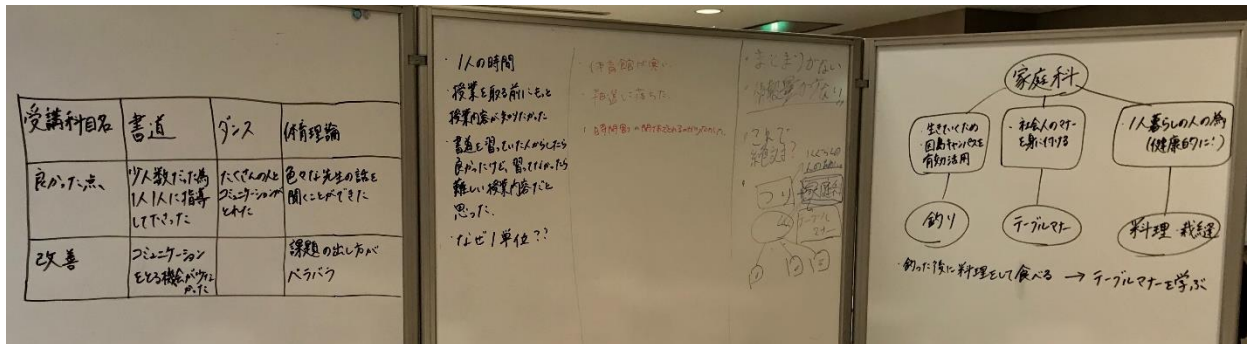 受講科目名
書道
ダンス
体育理論
良かった点、
少人数だった為
1人1人に指導
して下さった
たくさんの人と
コミュニケーションが
とれた
色々な先生の話を
聞くことができた
改善
コミュニケーション
をとる機会が
課題の出し方が
バラバラ
・1人の時間
・授業を取る前にもっと
授業内容が知りたかった
・書道を習っていた人からしたら
良かったけど、習ってなかったら
難しい授業内容だと
思った。
・なぜ1単位??
・体育館が
・抽選に落ちた
・まとまりがない
絶対?
つり
テーブル
マナー
家庭科
生きていくため
因島キャンパスを
有効活用
・社会人のマナー
を身に付ける
1人暮らしの人の為
(健康的に!)
釣り
テーブルマナー
料理・裁縫
・釣った後に料理をして食べる → テーブルマナーを学ぶ